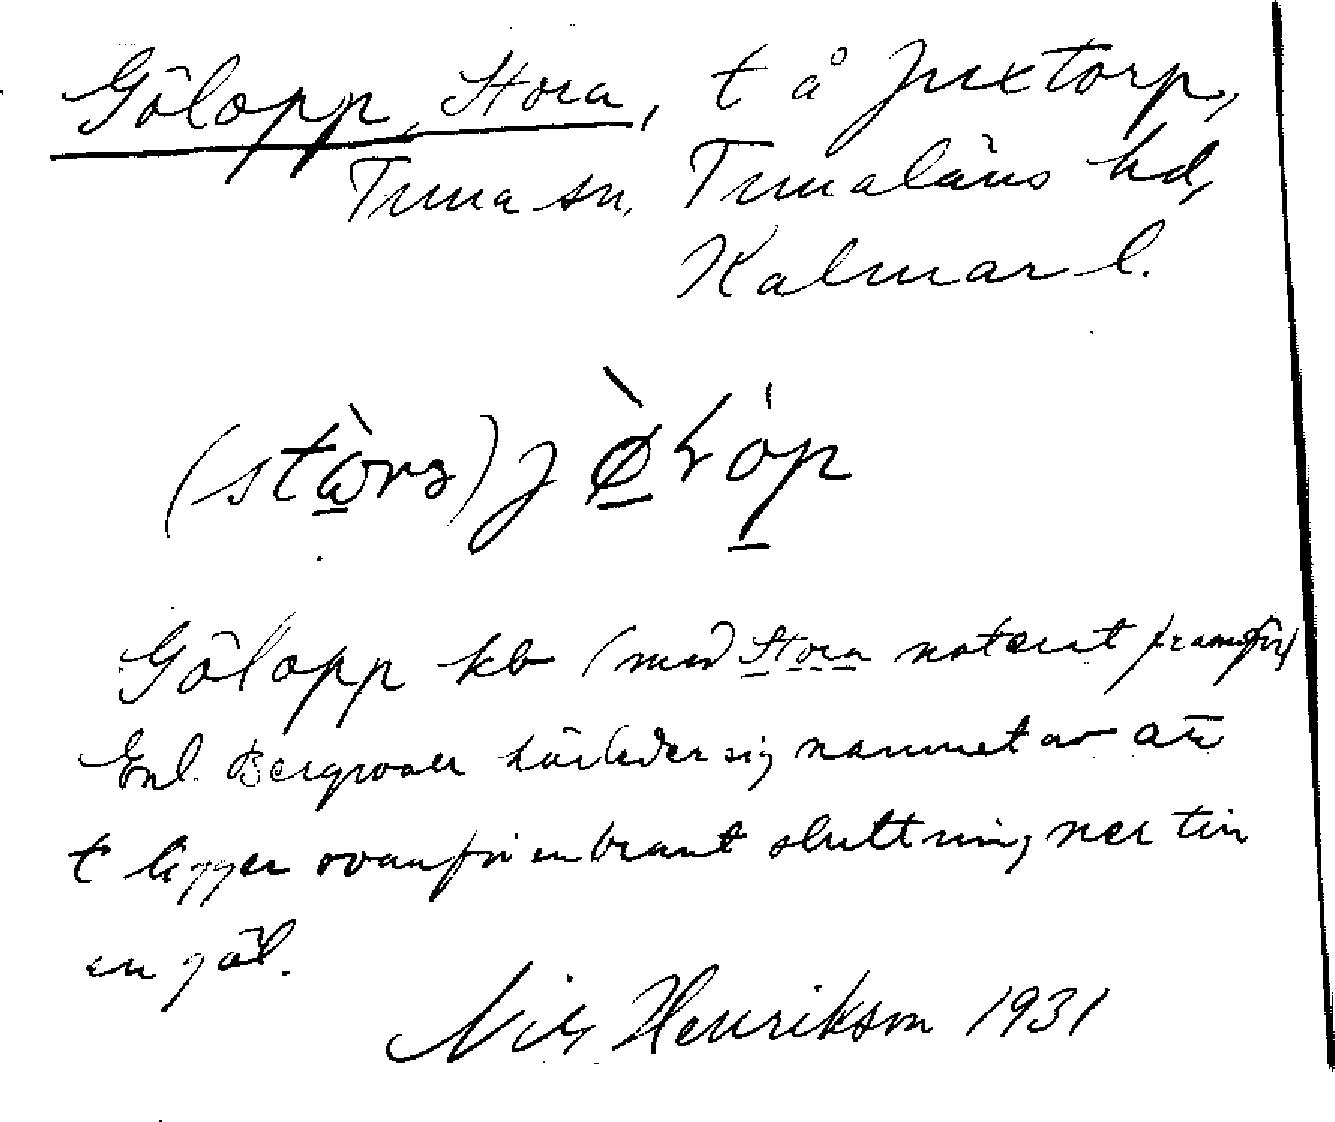 Gölopp, Stora, t å Juxtorp,
Tuna sn, Tunaläns hd,
Kalmar l.
Gölopp kb (med Stora noterat framför)
Enl. härleder sig namnet av att
t ligger ovanför en brant sluttning ner till
en göl.
Nils Henrikson 1931